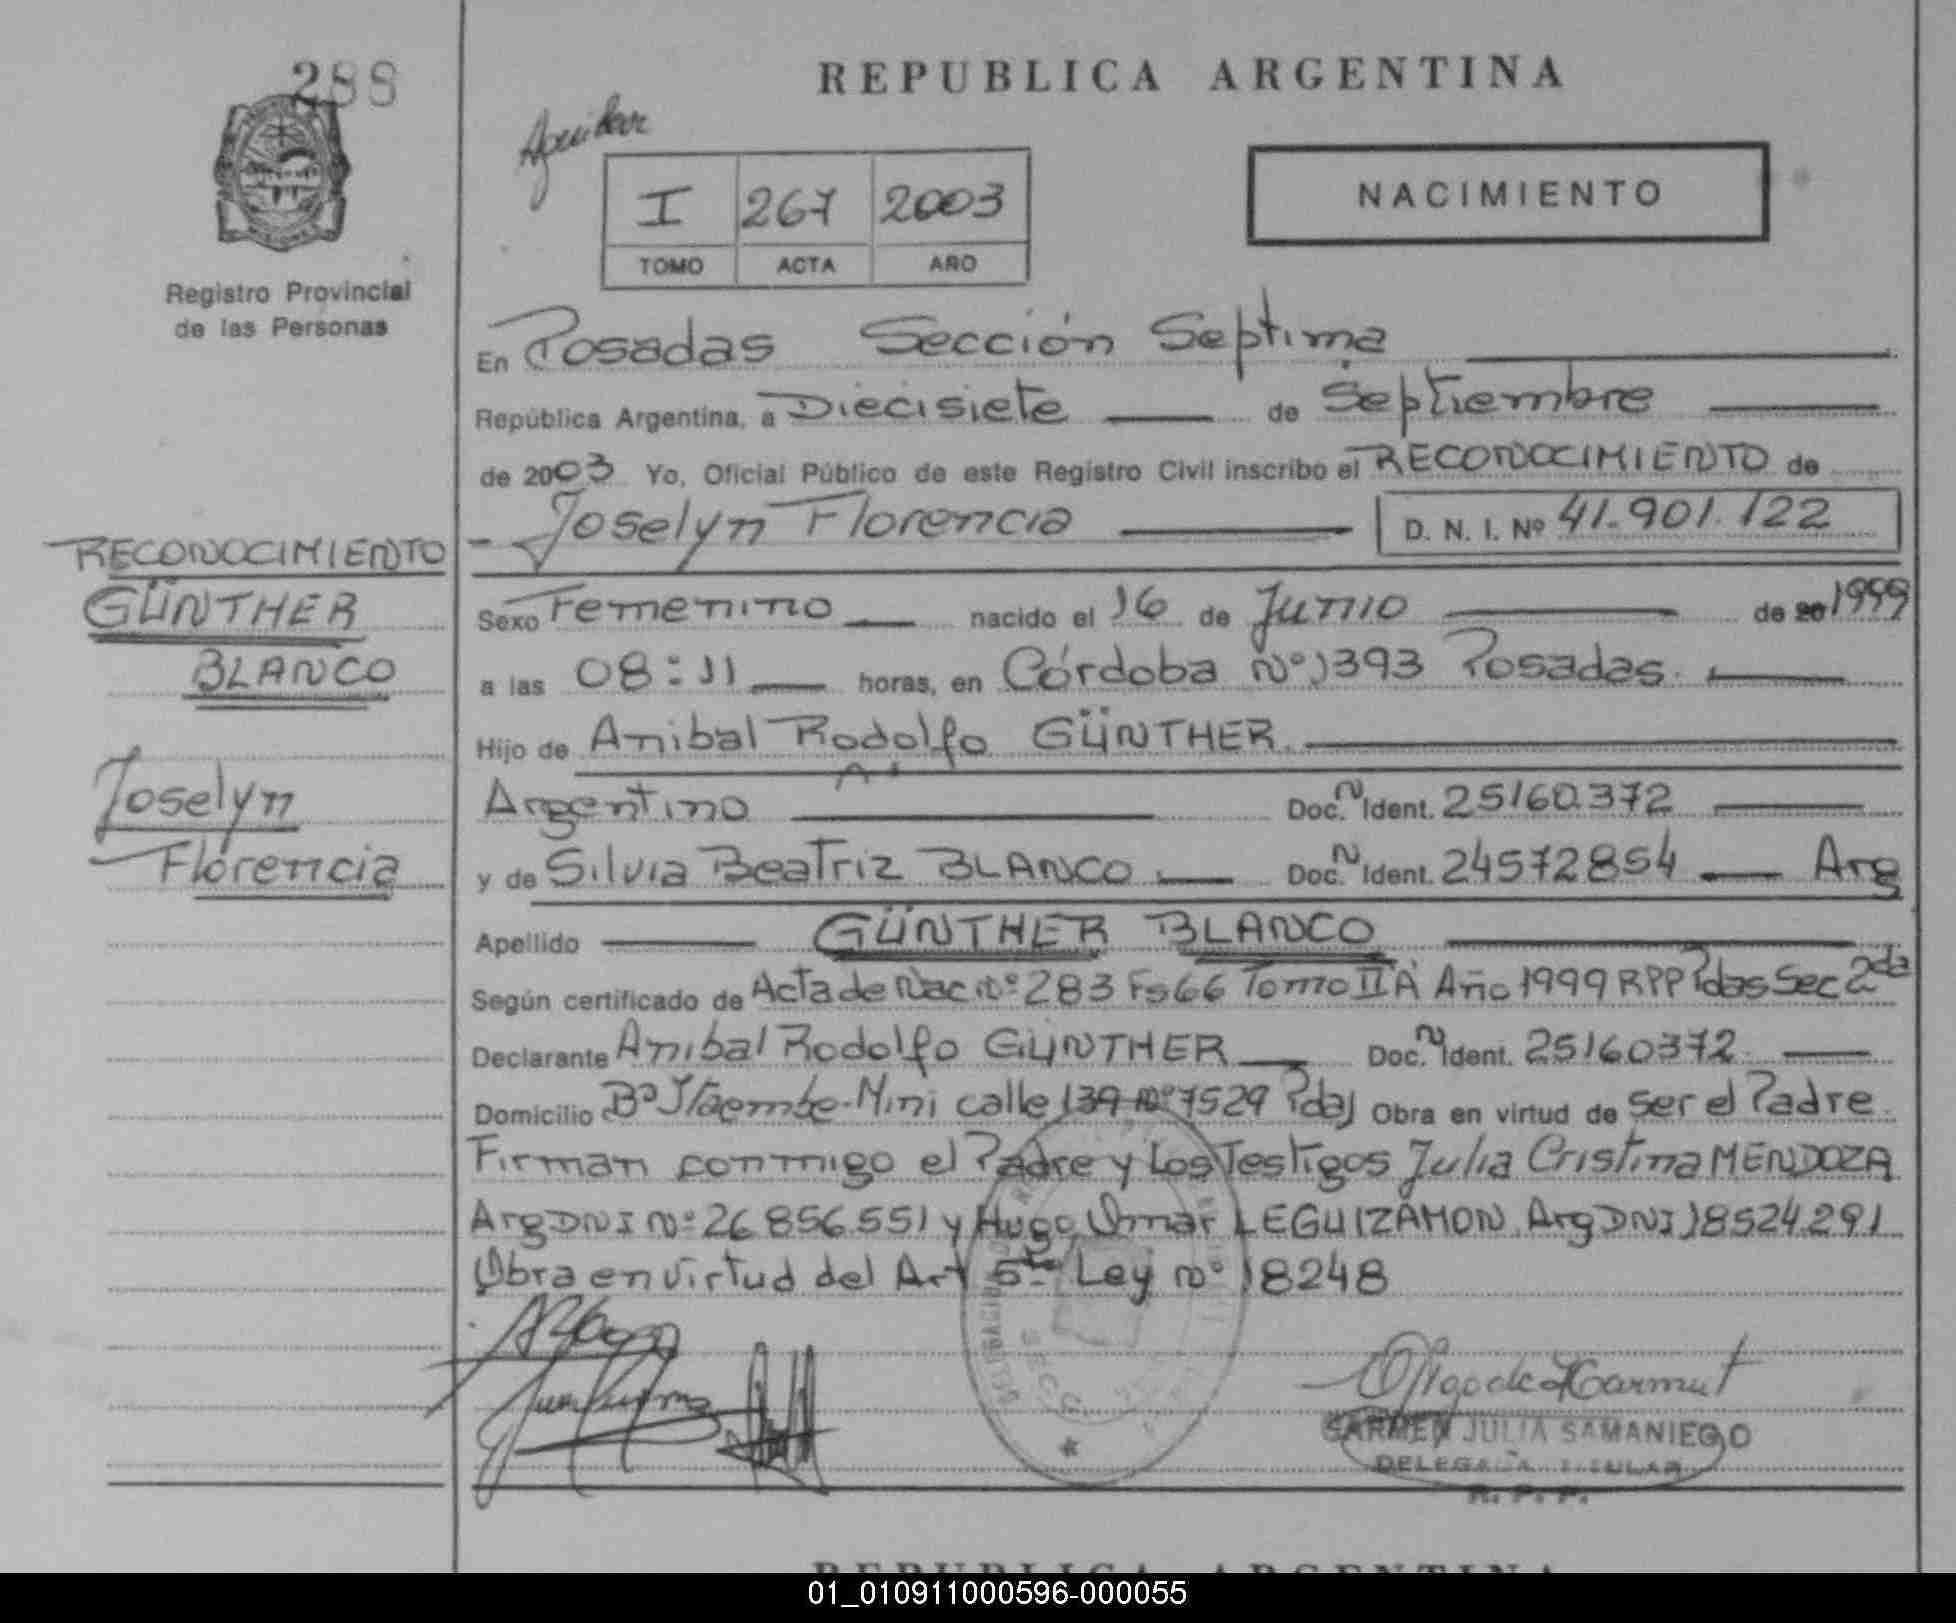 288
REPUBLICA ARGENTINA
Aguilar
I 267 2003
TOMO ACTA AÑO
NACIMIENTO
Registro Provincial
de las Personas
En Posadas Sección Septima
República Argentina, a Diecisiete de Septiembre
de 2003 Yo, Oficial Público de este Registro Civil inscribo el RECONOCIMIENTO de
Joselyn Florencia D. N. I. Nº 41.901.122
RECONOCIMIENTO
GÜNTHER
BLANCO
Joselyn
Florencia
Sexo Femenino nacido el 16 de Junio de 20 1999
a las 08:11 horas, en Córdoba Nº 1393 Posadas.
Hijo de Anibal Rodolfo GÜNTHER
Argentino Doc. N Ident. 25160.372
y de Silvia Beatriz BLANCO Doc. N Ident. 24572854 Arg
Apellido GÜNTHER BLANCO
Según certificado de Acta de Nac Nº 283 Fs 66 Tomo II A Año 1999 RPP Pdas Sec 2da
Declarante Anibal Rodolfo GÜNTHER Doc. N Ident. 25160372
Domicilio Bº Itaembe-Mini calle 139 Nº 7529 Pdas Obra en virtud de ser el Padre
Firman conmigo el Padre y Los Testigos Julia Cristina MENDOZA
Arg DNI Nº 26.856.551 y Hugo Omar LEGUIZAMON Arg DNI 18524.291
Obra en virtud del Art 5to Ley Nº 18248
CARMEN JULIA SAMANIEGO
DELEGADA TITULAR
R. P. P.
REPUBLICA ARGENTINA
01_010911000596-000055